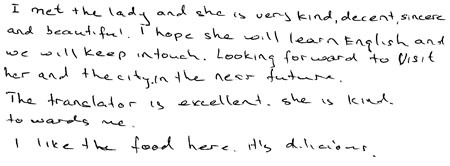 I met the lady and she is very kind, decent, sincere
and beautiful. I hope she will learn English and
we will keep in touch. Looking forward to visit
her and the city, in the near future.
The translator is excellent. she is kind.
towards me.
I like the food here. it's delicious.